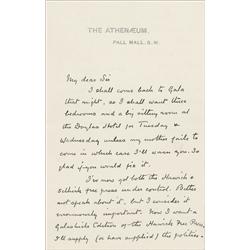 THE ATHENÆUM,
PALL MALL, S.W.
My dear Sir
I shall come back to Gala
that night, so I shall want three
bedrooms and a big sitting room at
the Douglas Hotel for Tuesday &
Wednesday unless my mother fails to
come in which case I'll warn you. So
glad if you would fix it.
I've now got both the Hawick &
Selkirk free press under control. Better
not speak about it, but I consider it
enormously important. Now I want a
Galashiels Edition of the Hawick Free Press
I'll supply (or have supplied) the politics -